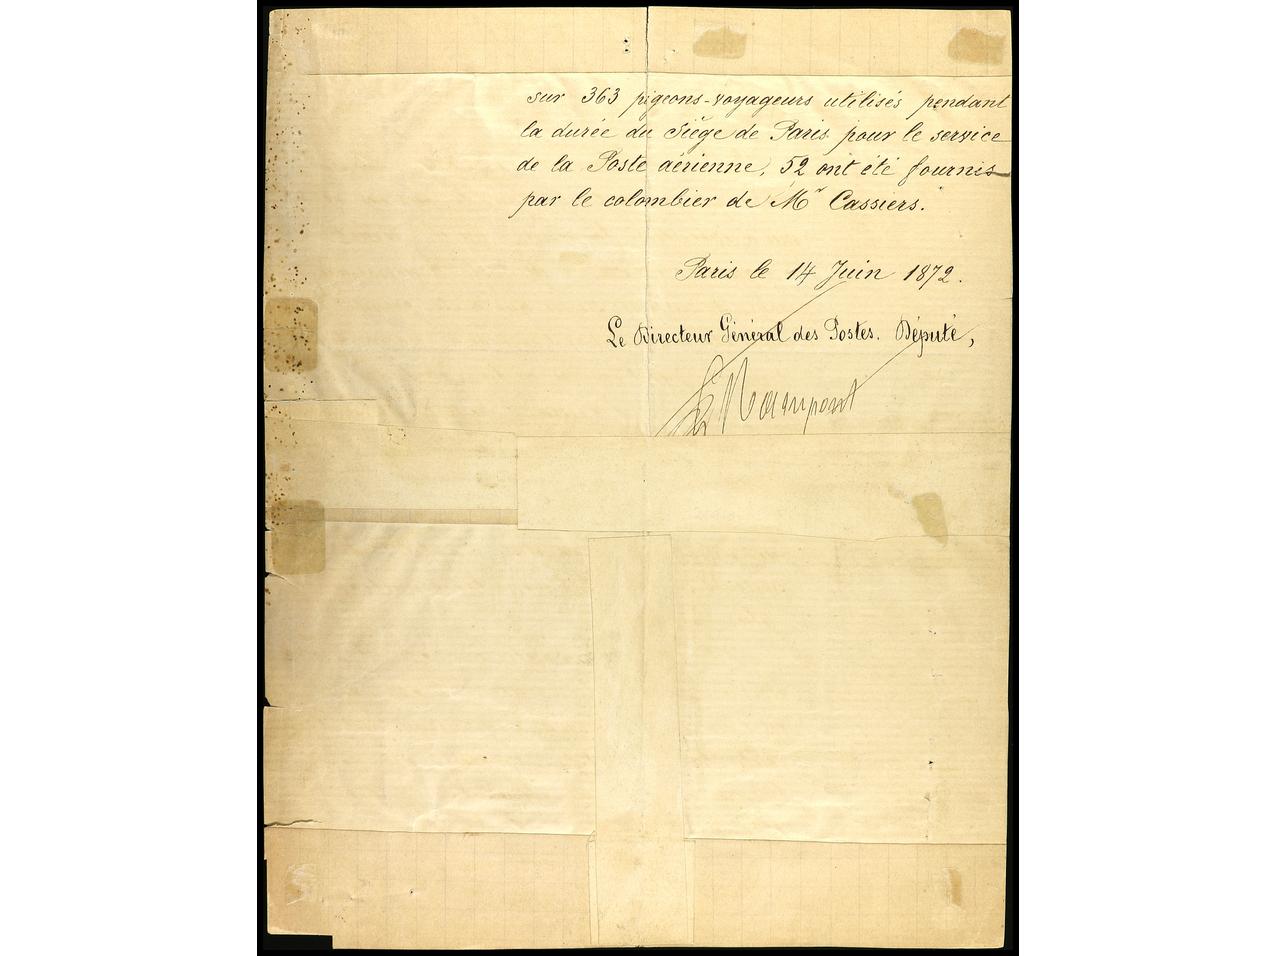 sur 363 pigeons-voyageurs utilisés pendant
la durée du Siège de Paris pour le service
de la Poste aérienne, 52 ont été fournis
par le colombier de Mr Cassiers."
Paris le 14 Juin 1872.
Le Directeur Général des Postes. Député,
Rampont